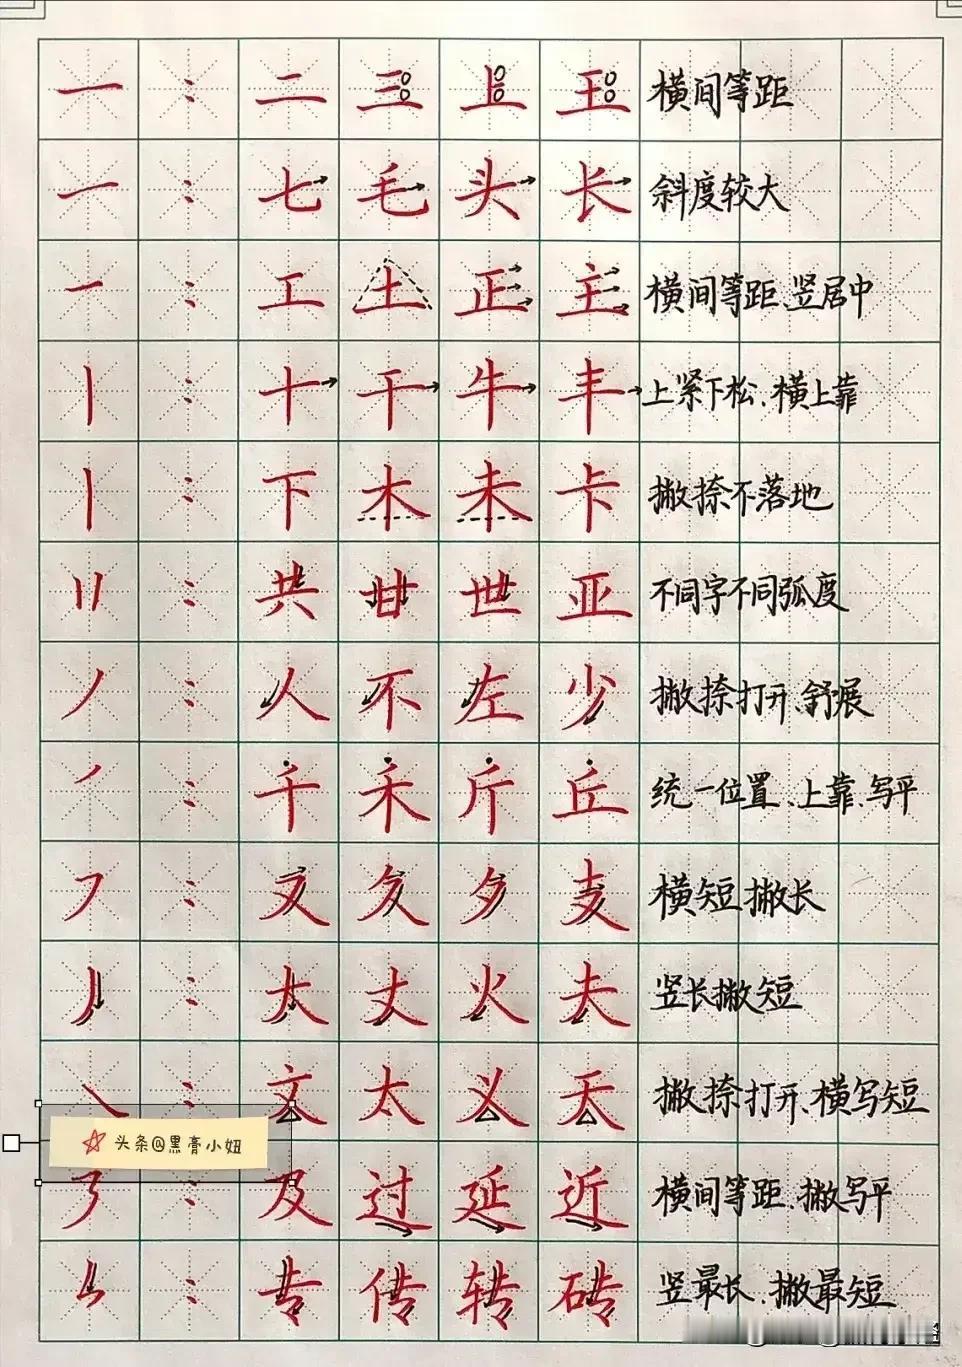 一 : 二 三 上 王 横间等距
一 : 七 毛 头 长 斜度较大
一 : 工 土 正 主 横间等距、竖居中
丨 : 十 干 牛 丰 上紧下松、横上靠
丨 : 下 木 未 卡 撇捺不落地
〢 : 共 甘 世 亚 不同字不同弧度
丿 : 人 不 左 少 撇捺打开、舒展
丿 : 千 禾 斤 丘 统一位置、上靠、写平
㇇ : 又 夂 夕 支 横短撇长
丿 : 大 丈 火 夫 竖长撇短
㇏ : 文 太 义 天 撇捺打开、横写短
头条@黑膏小妞
㇋ : 及 过 延 近 横间等距、撇写平
㇉ : 专 传 转 砖 竖最长、撇最短